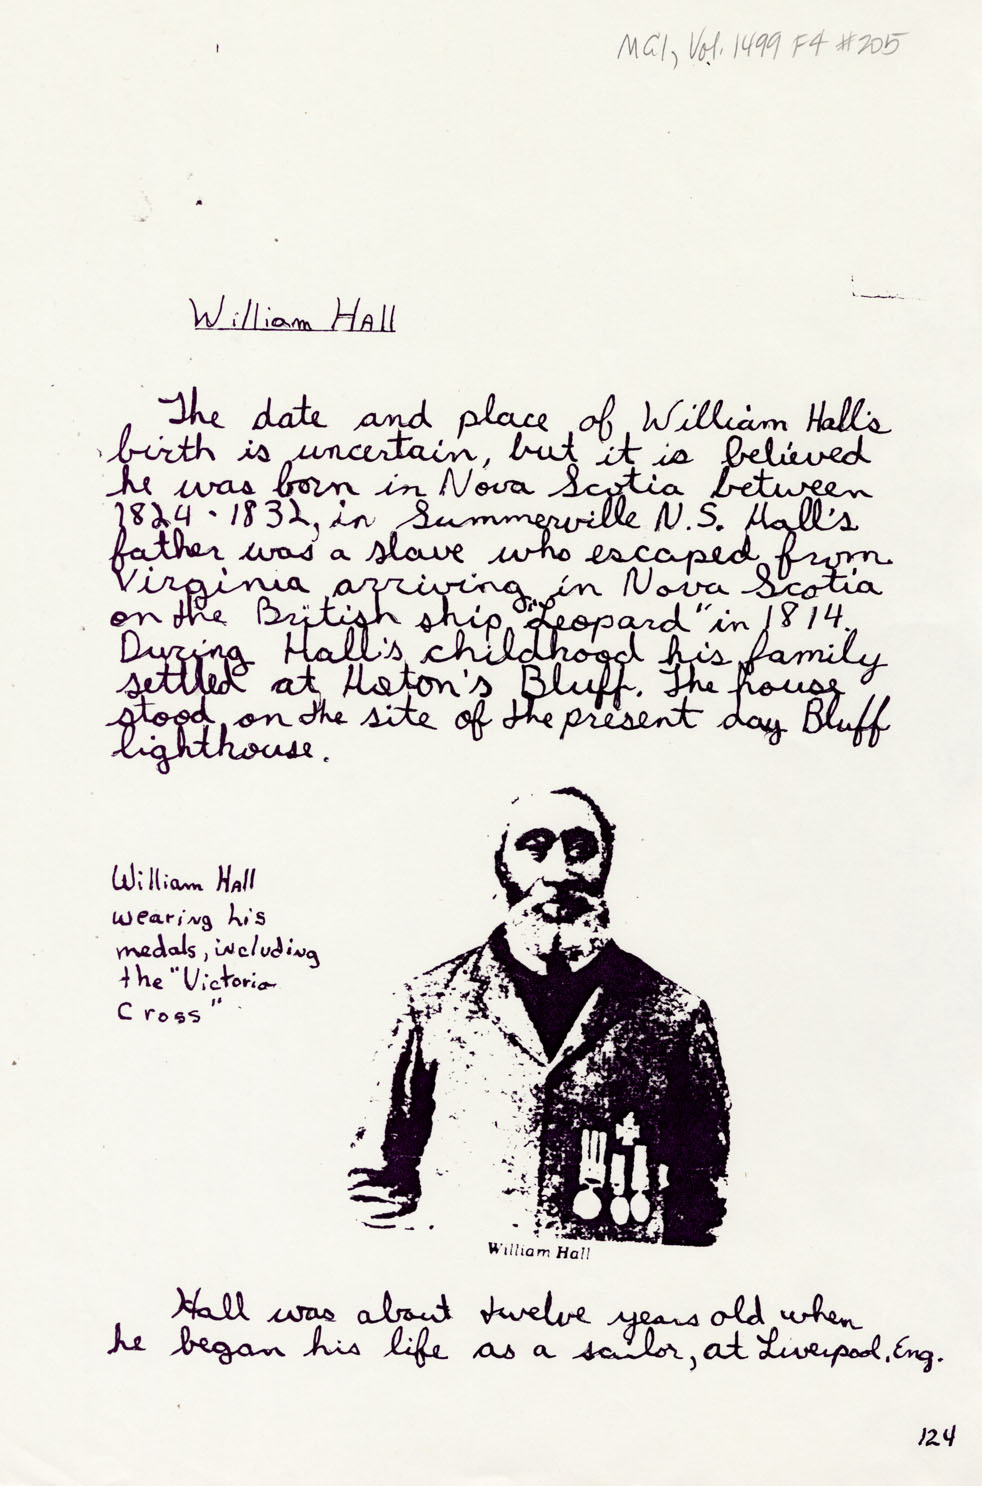 MG1, Vol. 1499 F4 #205
William Hall
The date and place of William Hall's
birth is uncertain, but it is believed
he was born in Nova Scotia between
1824 - 1832, in Summerville N.S. Hall's
father was a slave who escaped from
Virginia arriving in Nova Scotia
on the British ship "Leopard" in 1814.
During Hall's childhood his family
settled at Hoton's Bluff. The house
stood on the site of the present day Bluff
lighthouse.
William Hall
wearing his
medals, including
the "Victoria
Cross"
William Hall
Hall was about twelve years old when
he began his life as a sailor, at Liverpool, Eng.
124